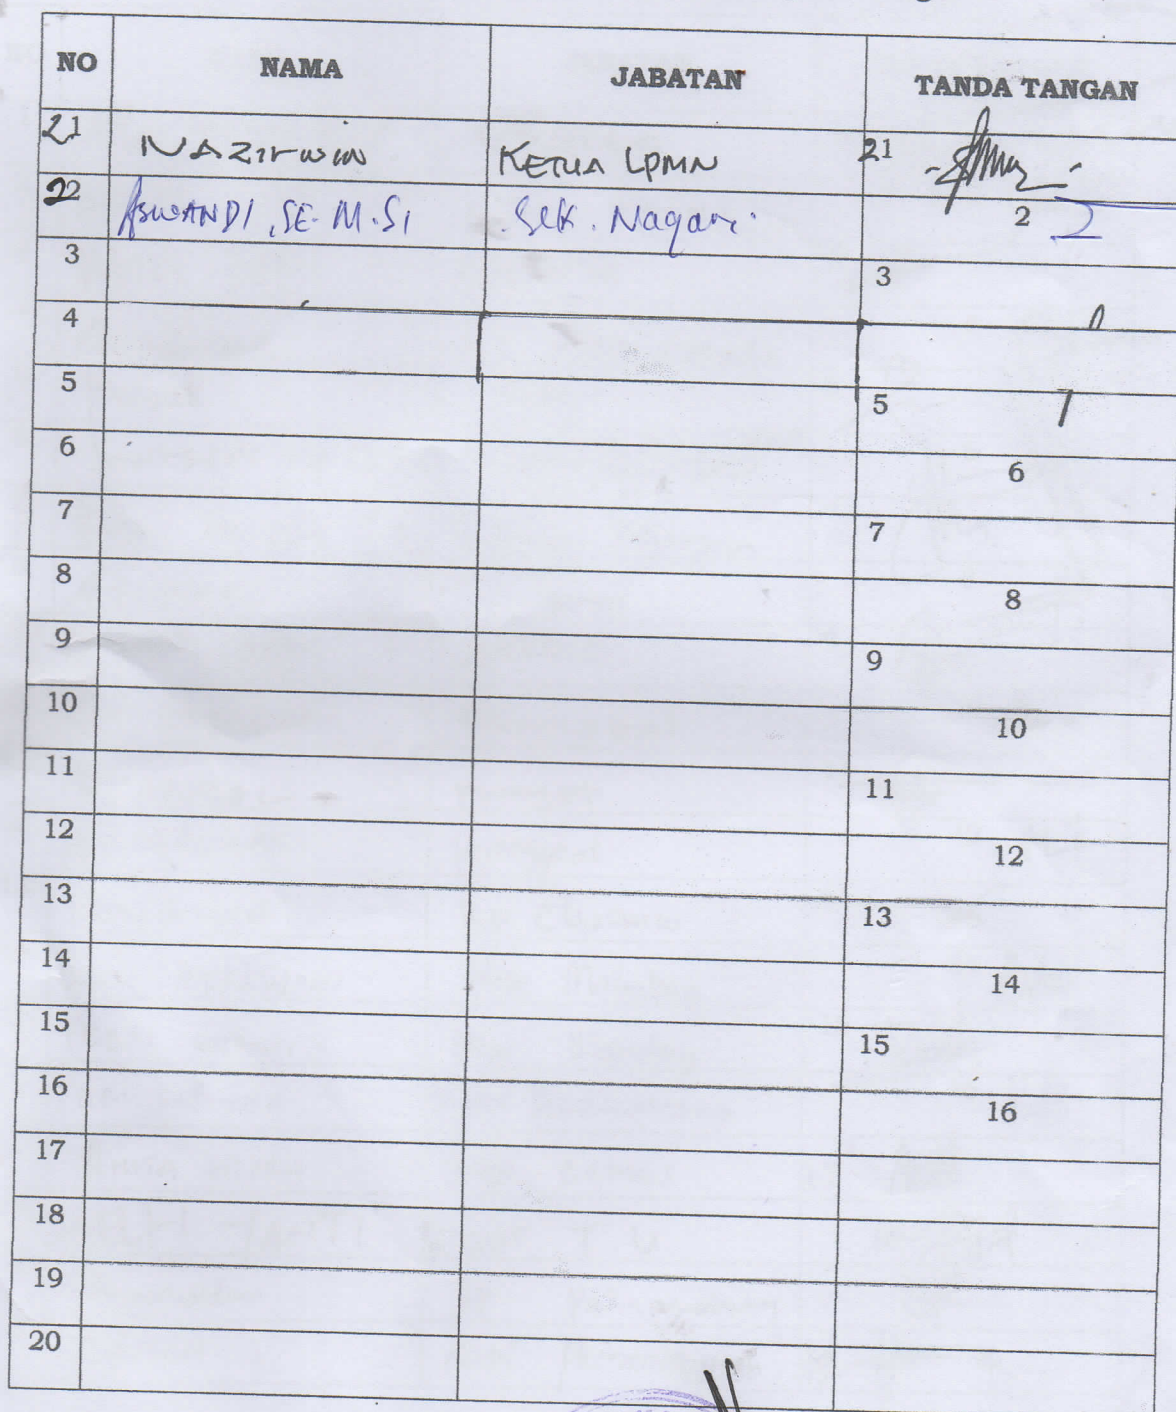 NO NAMA JABATAN TANDA TANGAN
21 NAZIRWIN KETUA LPMN 21
22 ASWANDI, SE. M.Si Sek. Nagari 2
3 3
4
5 5
6 6
7 7
8 8
9 9
10 10
11 11
12 12
13 13
14 14
15 15
16 16
17
18
19
20